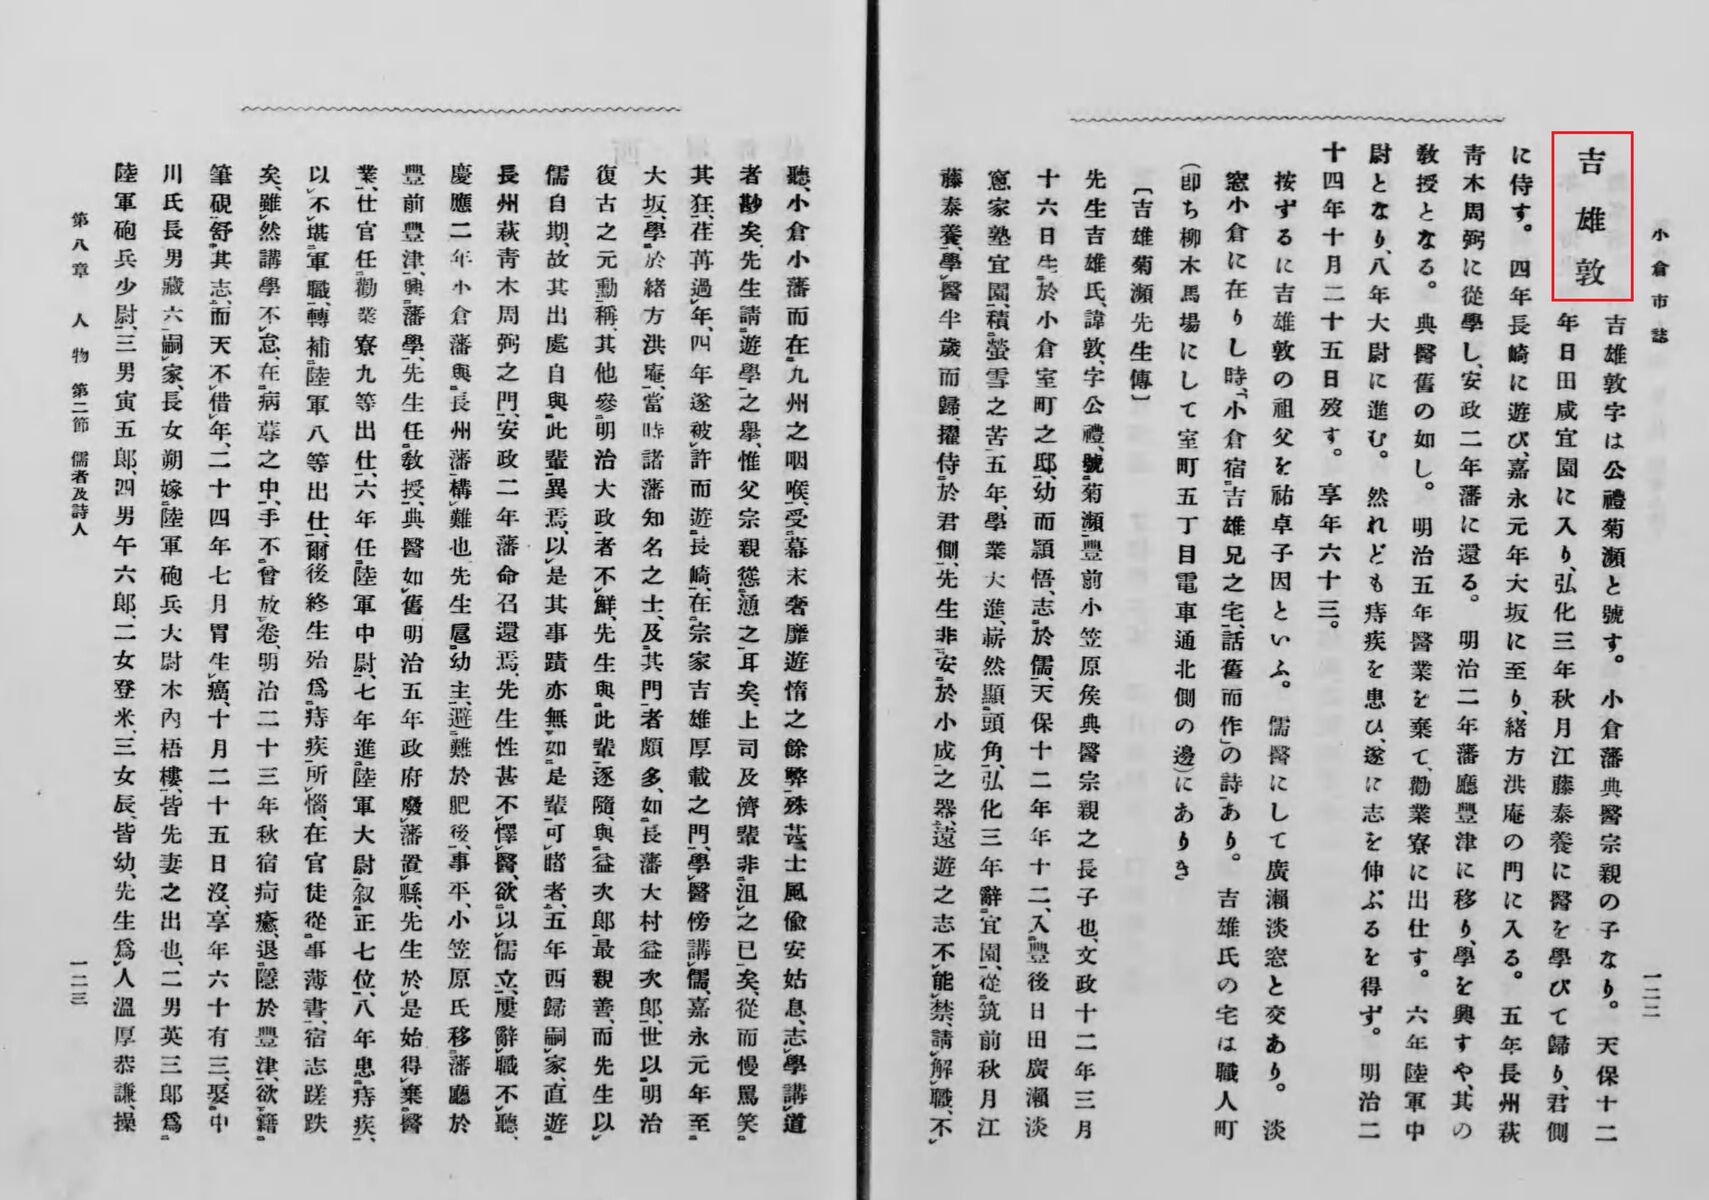 小倉市誌
一二二
吉雄敦
吉雄敦字は公禮菊瀬と號す。小倉藩典醫宗親の子なり。天保十二
年日田咸宜園に入り、弘化三年秋月江藤泰養に醫を學びて歸り、君側
に侍す。四年長崎に遊び、嘉永元年大坂に至り、緒方洪庵の門に入る。五年長州萩
靑木周弼に從學し、安政二年藩に還る。明治二年藩廳豐津に移り、學を興すや、其の
敎授となる。典醫舊の如し。明治五年醫業を棄て、勸業寮に出仕す。六年陸軍中
尉となり、八年大尉に進む。然れども痔疾を患ひ、遂に志を伸ぶるを得ず。明治二
十四年十月二十五日歿す。享年六十三。
按ずるに吉雄敦の祖父を祐卓子因といふ。儒醫にして廣瀨淡窓と交あり。淡
窓小倉に在りし時、「小倉宿吉雄兄之宅、話舊而作」の詩あり。吉雄氏の宅は職人町
(卽ち柳木馬場にして室町五丁目電車通北側の邊)にありき
〔吉雄菊瀕先生傳〕
先生吉雄氏、諱敦、字公禮、號菊瀕、豐前小笠原矦典醫宗親之長子也、文政十二年三月
十六日生於小倉室町之邸、幼而頴悟、志於儒、天保十二年年十二、入豐後日田廣瀨淡
窻家塾宜園、積螢雪之苦五年、學業大進、嶄然顯頭角、弘化三年辭宜園、從筑前秋月江
藤泰養、學醫半歲而歸、擢侍於君側、先生非安於小成之器、遠遊之志不能禁、請解職、不
聽、小倉小藩而在九州之咽喉、受幕末奢靡遊惰之餘弊、殊甚、士風偸安姑息、志學講道
者尠矣、先生請遊學之擧、惟父宗親慫慂之耳矣、上司及儕輩非沮之已矣、從而慢罵笑
其狂、荏苒過年、四年遂被許而遊長崎、在宗家吉雄厚載之門、學醫傍講儒、嘉永元年至
大坂、學於緒方洪庵、當時諸藩知名之士、及其門者頗多、如長藩大村益次郞、世以明治
復古之元勳稱、其他參明治大政者不鮮、先生與此輩逐隨、與益次郞最親善、而先生以
儒自期、故其出處自與此輩異焉、以是其事蹟亦無如是輩可睹者、五年西歸嗣家、直遊
長州萩靑木周弼之門、安政二年藩命召還焉、先生性甚不懌醫、欲以儒立、屢辭職不聽、
慶應二年小倉藩與長州藩構難也先生扈幼主、避難於肥後、事平、小笠原氏移藩廳於
豐前豐津、興藩學、先生任敎授、典醫如舊、明治五年政府廢藩置縣、先生於是始得棄醫
業、仕官任勸業寮九等出仕、六年任陸軍中尉、七年進陸軍大尉、叙正七位、八年患痔疾、
以不堪軍職、轉補陸軍八等出仕、爾後終生殆爲痔疾所惱、在官徒從事薄書、宿志蹉跌
矣、雖然講學不怠、在病蓐之中、手不曾放卷、明治二十三年秋宿痾癒、退隱於豐津、欲籍
筆硯舒其志、而天不借年、二十四年七月胃生癌、十月二十五日沒、享年六十有三、娶中
川氏長男藏六嗣家、長女朔嫁陸軍砲兵大尉木內梧樓、皆先妻之出也、二男英三郞爲
陸軍砲兵少尉、三男寅五郞、四男午六郞、二女登米、三女辰、皆幼、先生爲人溫厚恭謙、操
第八章 人物 第二節 儒者及詩人
一二三